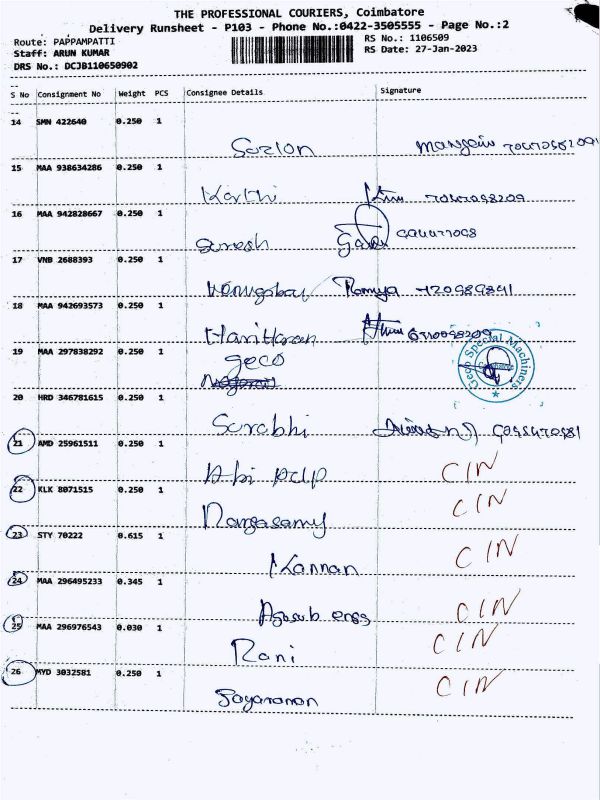 THE PROFESSIONAL COURIERS, Coimbatore
Delivery Runsheet - P103 - Phone No.:0422-3505555 - Page No.:2
Route: PAPPAMPATTI RS No.: 1106509
Staff: ARUN KUMAR RS Date: 27-Jan-2023
DRS No.: DCJB110650902
S No Consignment No Weight PCS Consignee Details Signature
14 SMN 422640 0.250 1
Suzlon
15 MAA 938634286 0.250 1
Karthi
16 MAA 942828667 0.250 1
Suresh
17 VNB 2688393 0.250 1
Ramya
18 MAA 942693573 0.250 1
Hariharan
19 MAA 297838292 0.250 1
geco
Geco Special Machines
20 HRD 346781615 0.250 1
Surabhi
21 AMD 25961511 0.250 1
Abi pdp CIN
22 KLK 8071515 0.250 1
Rangasamy CIN
23 STY 70222 0.615 1
Kannan CIN
24 MAA 296495233 0.345 1
engg CIN
25 MAA 296976543 0.030 1
Rani CIN
26 MYD 3032581 0.250 1
Jayaraman CIN